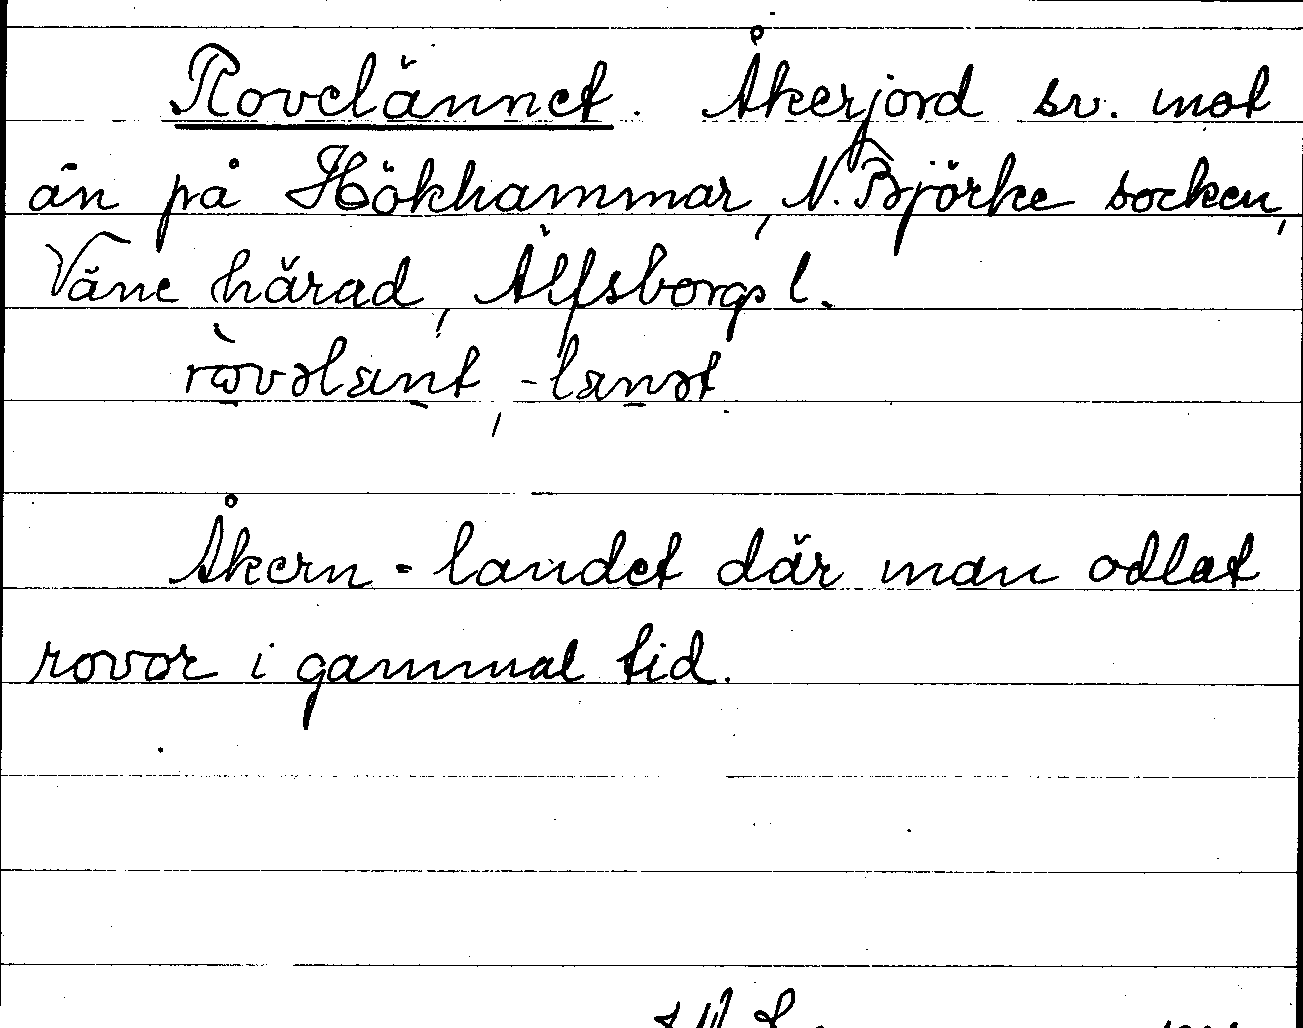 Rovelännet. Åkerjord sv. mot
ån på Hökhammar, N. Björke socken,
Väne härad, Älfsborgs l.
rɷ̀vəlant, -lanət
Åkern - landet där man odlat
rovor i gammal tid.